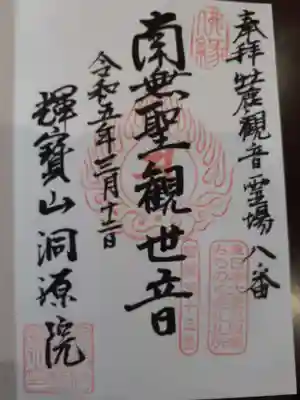 奉拝 牡鹿観音霊場 八番
佛縁
南無聖観世音
令和五年三月十二日
輝寶山洞源院